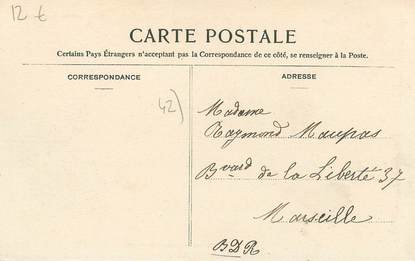 12 €
CARTE POSTALE
Certains Pays Étrangers n'acceptant pas la Correspondance de ce côté, se renseigner à la Poste.
CORRESPONDANCE
ADRESSE
42)
Madame
Raymond Maupas
Bvard de la Liberté 37
Marseille
BDR